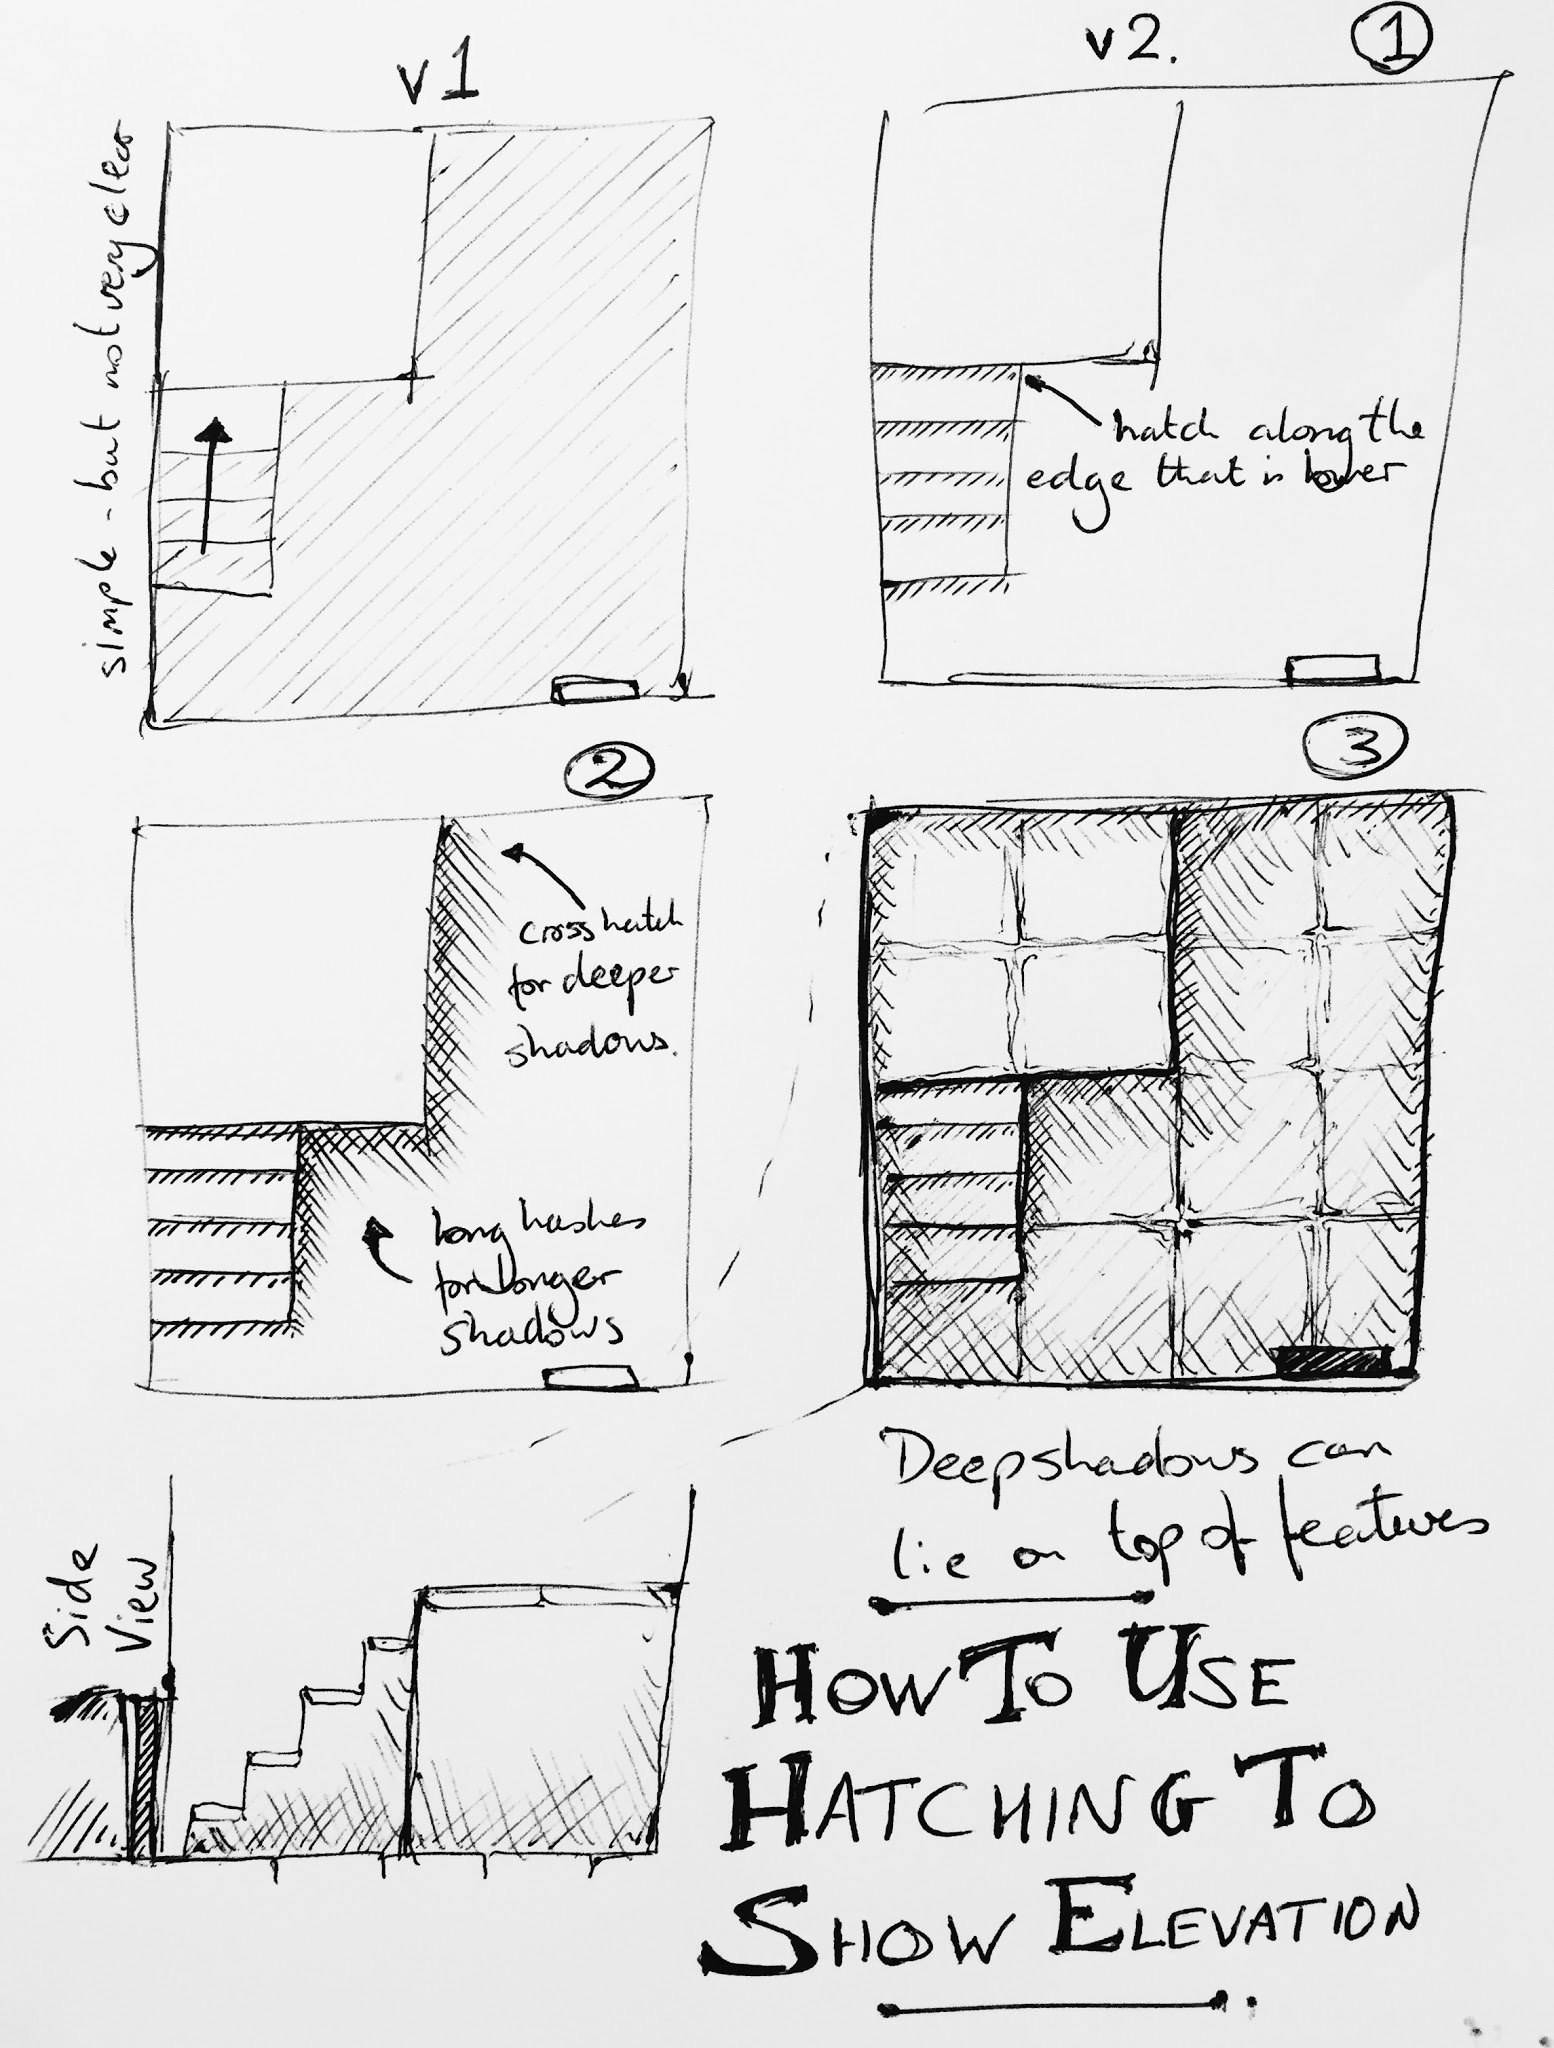 v1
simple - but not very clear
v2.
1
hatch along the
edge that is lower
2
cross hatch
for deeper
shadows.
long hashes
for longer
shadows
3
Deep shadows can
lie on top of features
Side
View
HOW TO USE
HATCHING TO
SHOW ELEVATION